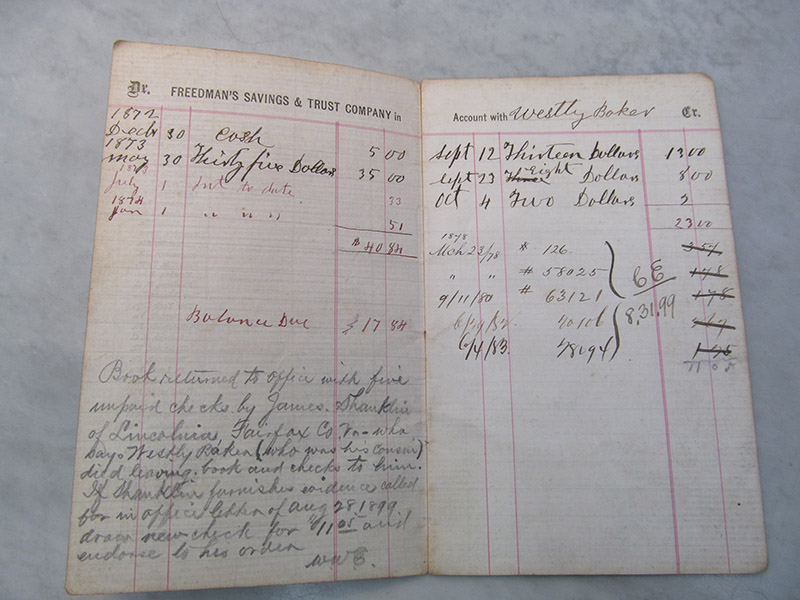 Dr. FREEDMAN'S SAVINGS & TRUST COMPANY in
1872
Decbr 30 Cash 5 00
1873
May 30 Thirty five Dollars 35 00
1873
July 1 Int to date 33
1874
Jan 1 " " " " 51
$ 40 84
Balance Due $ 17 84
Book returned to office with five
unpaid checks by James. Shanklin
of Lincolnia, Fairfax Co, Va - who
says Westly Baker (who was his cousin)
died leaving book and checks to him.
If Shanklin furnishes evidence called
for in office letter of Aug 28 1899
draw new check for $11 05 and
endorse to his order
WWE.
Account with Westly Baker Cr.
Sept 12 Thirteen Dollars 13 00
Eight
Sept 23 Three Dollars 8 00
Oct 4 Two Dollars 2
23 00
1878
Mch 23/78 # 126. 357
" " # 58025 178
9/11/80 # 63121 178
40106
6/4/83. 78094 1 78
8,31,99
11 05